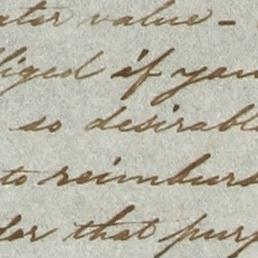 ater value -
liged if you
so desirabl
to reimburs
for that purp